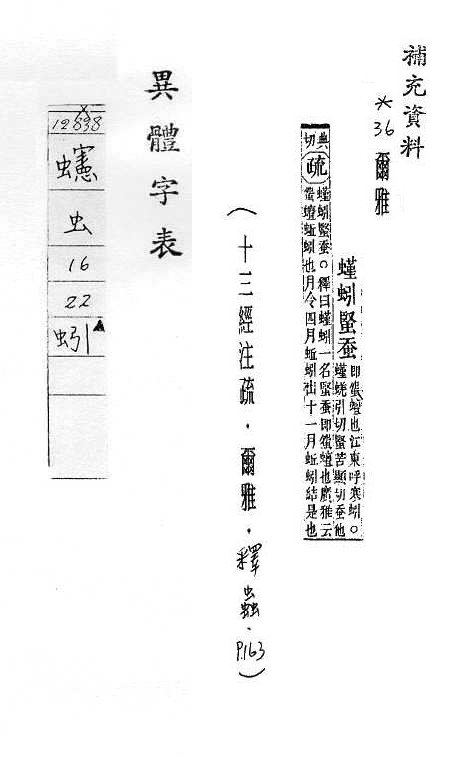 補充資料
*36 爾雅
螼蚓蜸蚕
即𧋘蟺也江東呼寒蚓○
螼羌引切蜸苦顯切蚕他
典切
疏
螼蚓蜸蚕○釋曰螼蚓一名蜸蚕即𧋘蟺也廣雅云
蟺蚯蚓也月令四月蚯蚓出十一月蚯蚓結是也
(十三經注疏.爾雅.釋蟲.P.163)
異體字表
12838
蟪
虫
16
22
蚓▲